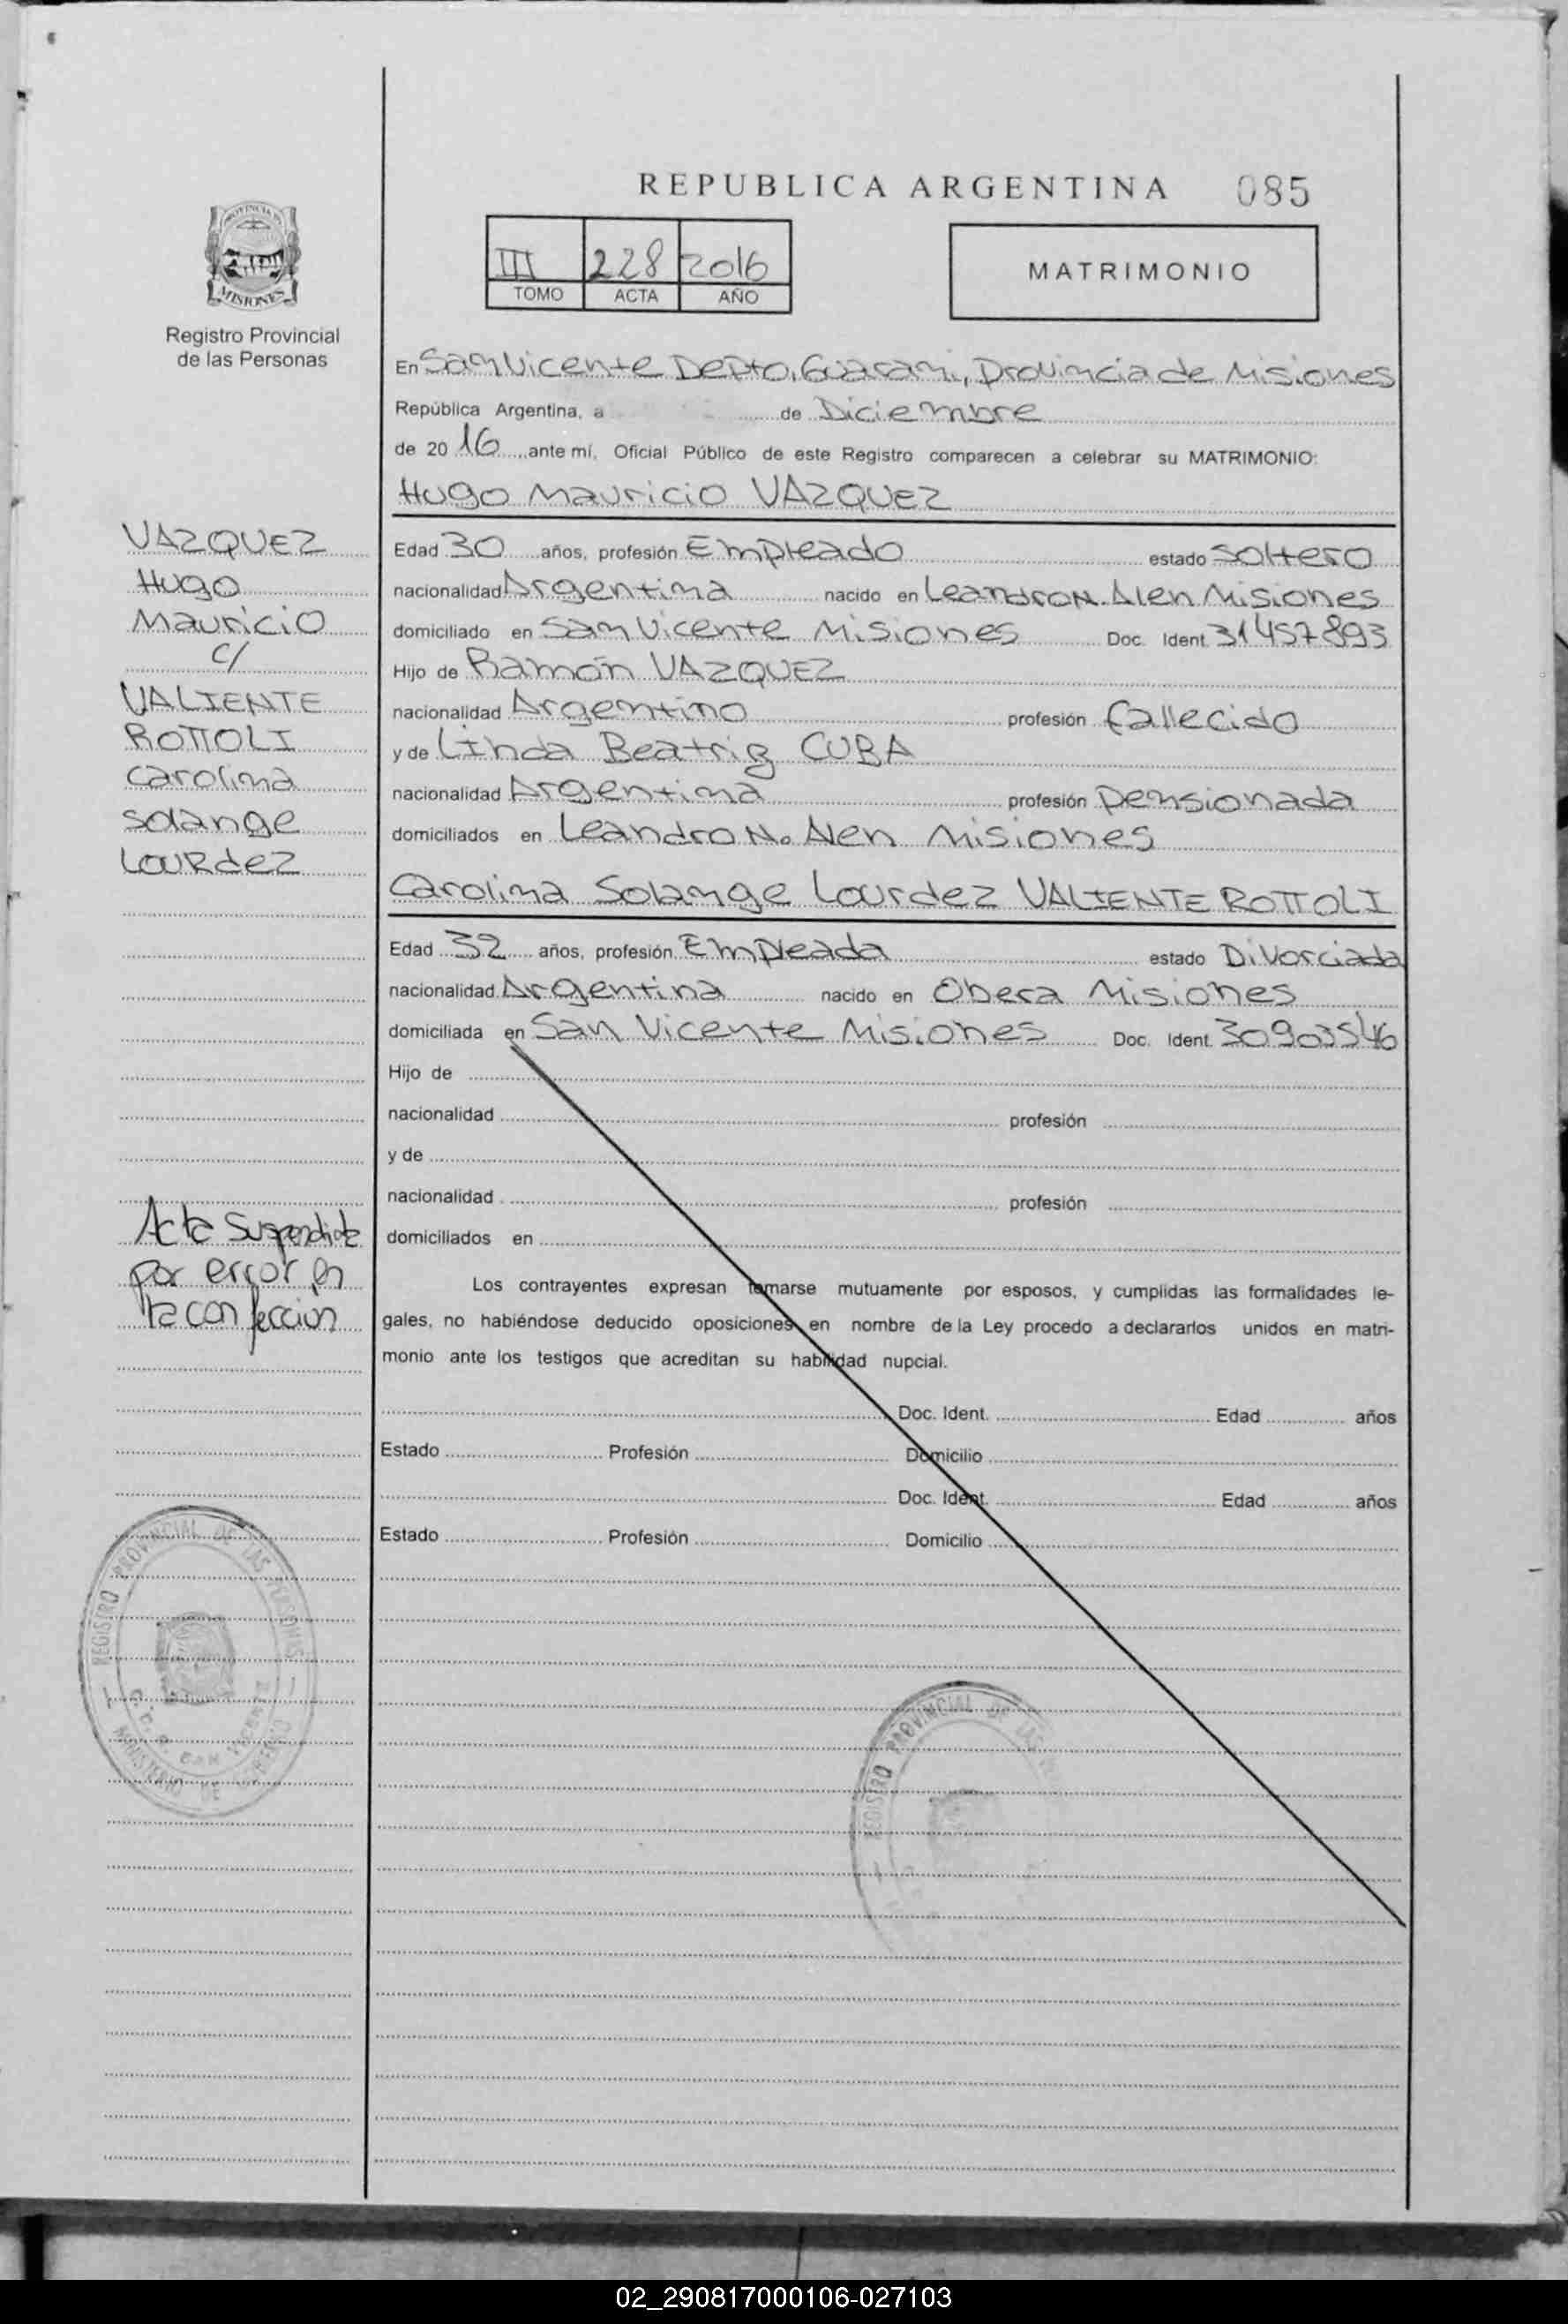 REPUBLICA ARGENTINA 085
PROVINCIA DE
MISIONES
Registro Provincial
de las Personas
III 228 2016
TOMO ACTA AÑO
MATRIMONIO
En San Vicente Depto. Guarani, Provincia de Misiones
República Argentina, a de Diciembre
de 20 16 ante mí, Oficial Público de este Registro comparecen a celebrar su MATRIMONIO:
Hugo Mauricio VAZQUEZ
VAZQUEZ
Hugo
Mauricio
c/
VALIENTE
ROTTOLI
Carolina
Solange
Lourdez
Edad 30 años, profesión Empleado estado Soltero
nacionalidad Argentina nacido en Leandro N. Alen Misiones
domiciliado en San Vicente Misiones Doc. Ident. 31457893
Hijo de Ramón VAZQUEZ
nacionalidad Argentino profesión fallecido
y de Linda Beatriz CUBA
nacionalidad Argentina profesión pensionada
domiciliados en Leandro N. Alen Misiones
Carolina Solange Lourdez VALIENTE ROTTOLI
Edad 32 años, profesión Empleada estado Divorciada
nacionalidad Argentina nacido en Obera Misiones
domiciliada en San Vicente Misiones Doc. Ident. 30903546
Hijo de
nacionalidad profesión
y de
nacionalidad profesión
domiciliados en
Acta Suspendida
por error en
la confeccion
Los contrayentes expresan tomarse mutuamente por esposos, y cumplidas las formalidades le-
gales, no habiéndose deducido oposiciones en nombre de la Ley procedo a declararlos unidos en matri-
monio ante los testigos que acreditan su habilidad nupcial.
Doc. Ident. Edad años
Estado Profesión Domicilio
Doc. Ident. Edad años
Estado Profesión Domicilio
REGISTRO PROVINCIAL DE LAS PERSONAS
SAN VICENTE
MINISTERIO DE GOBIERNO
REGISTRO PROVINCIAL DE LAS
02_290817000106-027103